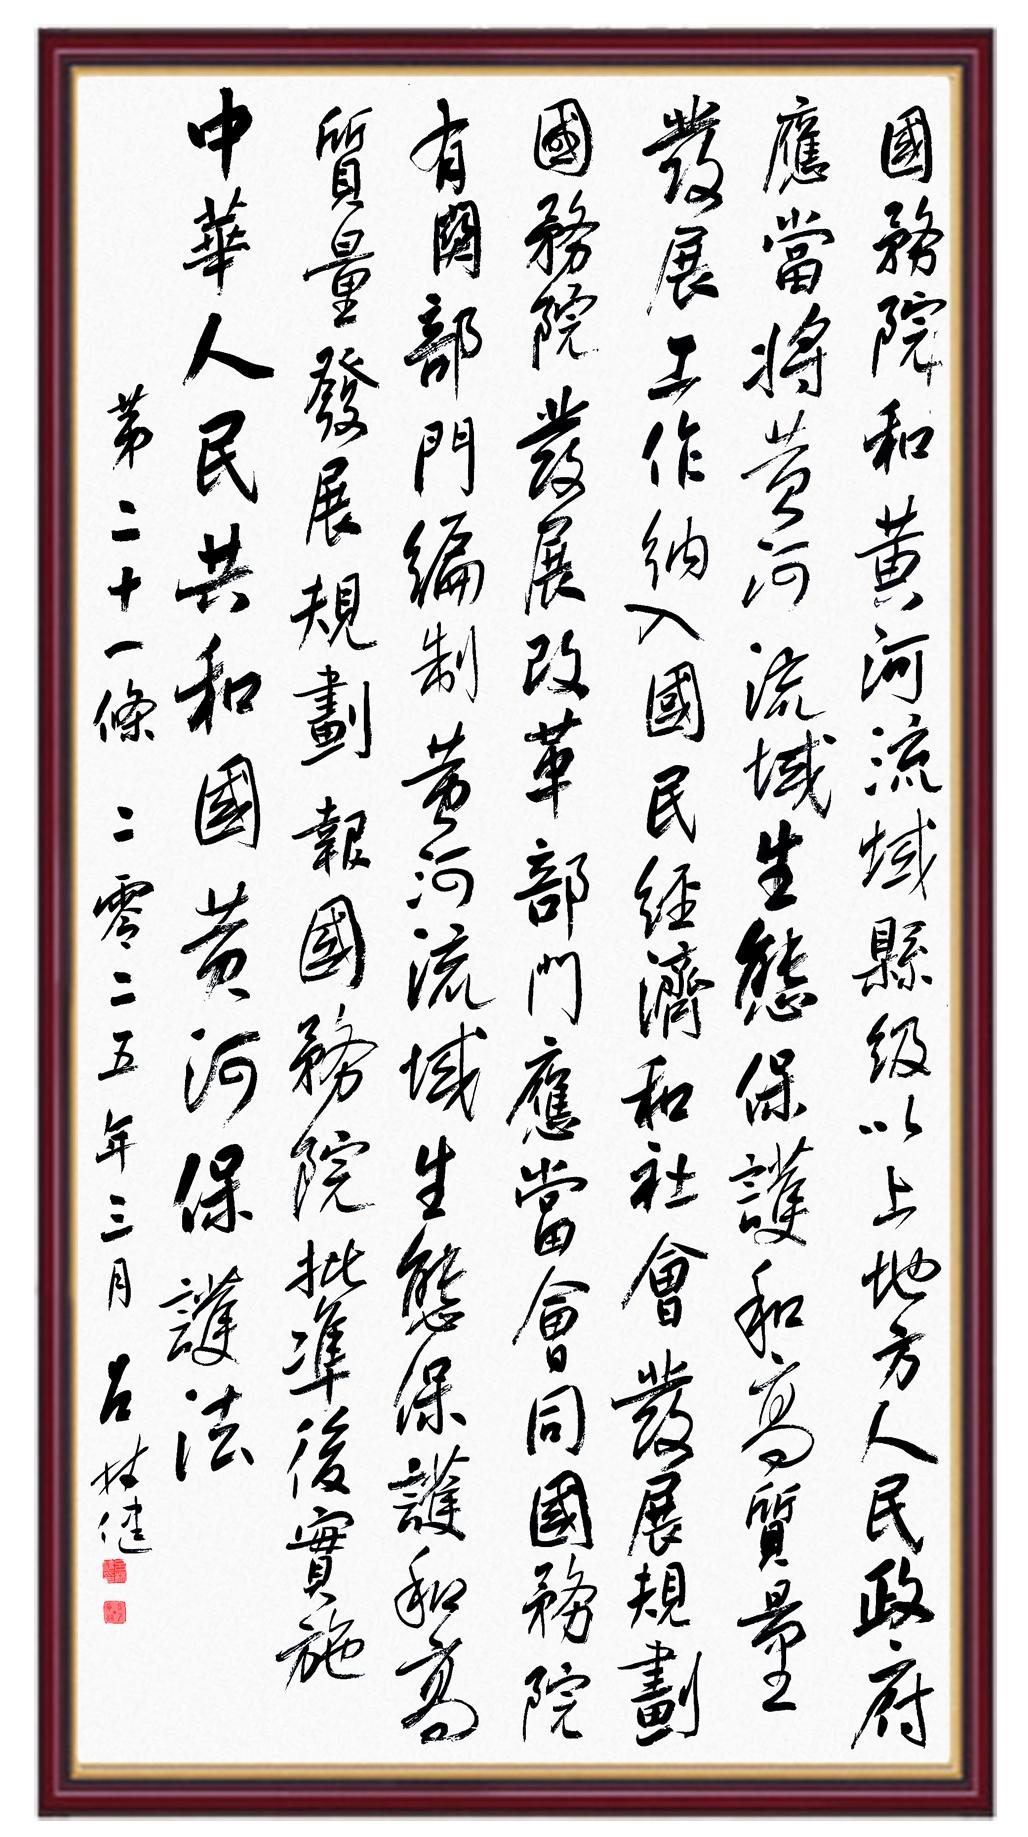 國務院和黃河流域縣級以上地方人民政府
應當將黃河流域生態保護和高質量
發展工作納入國民經濟和社會發展規劃
國務院發展改革部門應當會同國務院
有關部門編制黃河流域生態保護和高
質量發展規劃報國務院批準後實施
中華人民共和國黃河保護法
第二十一條 二零二五年三月 呂